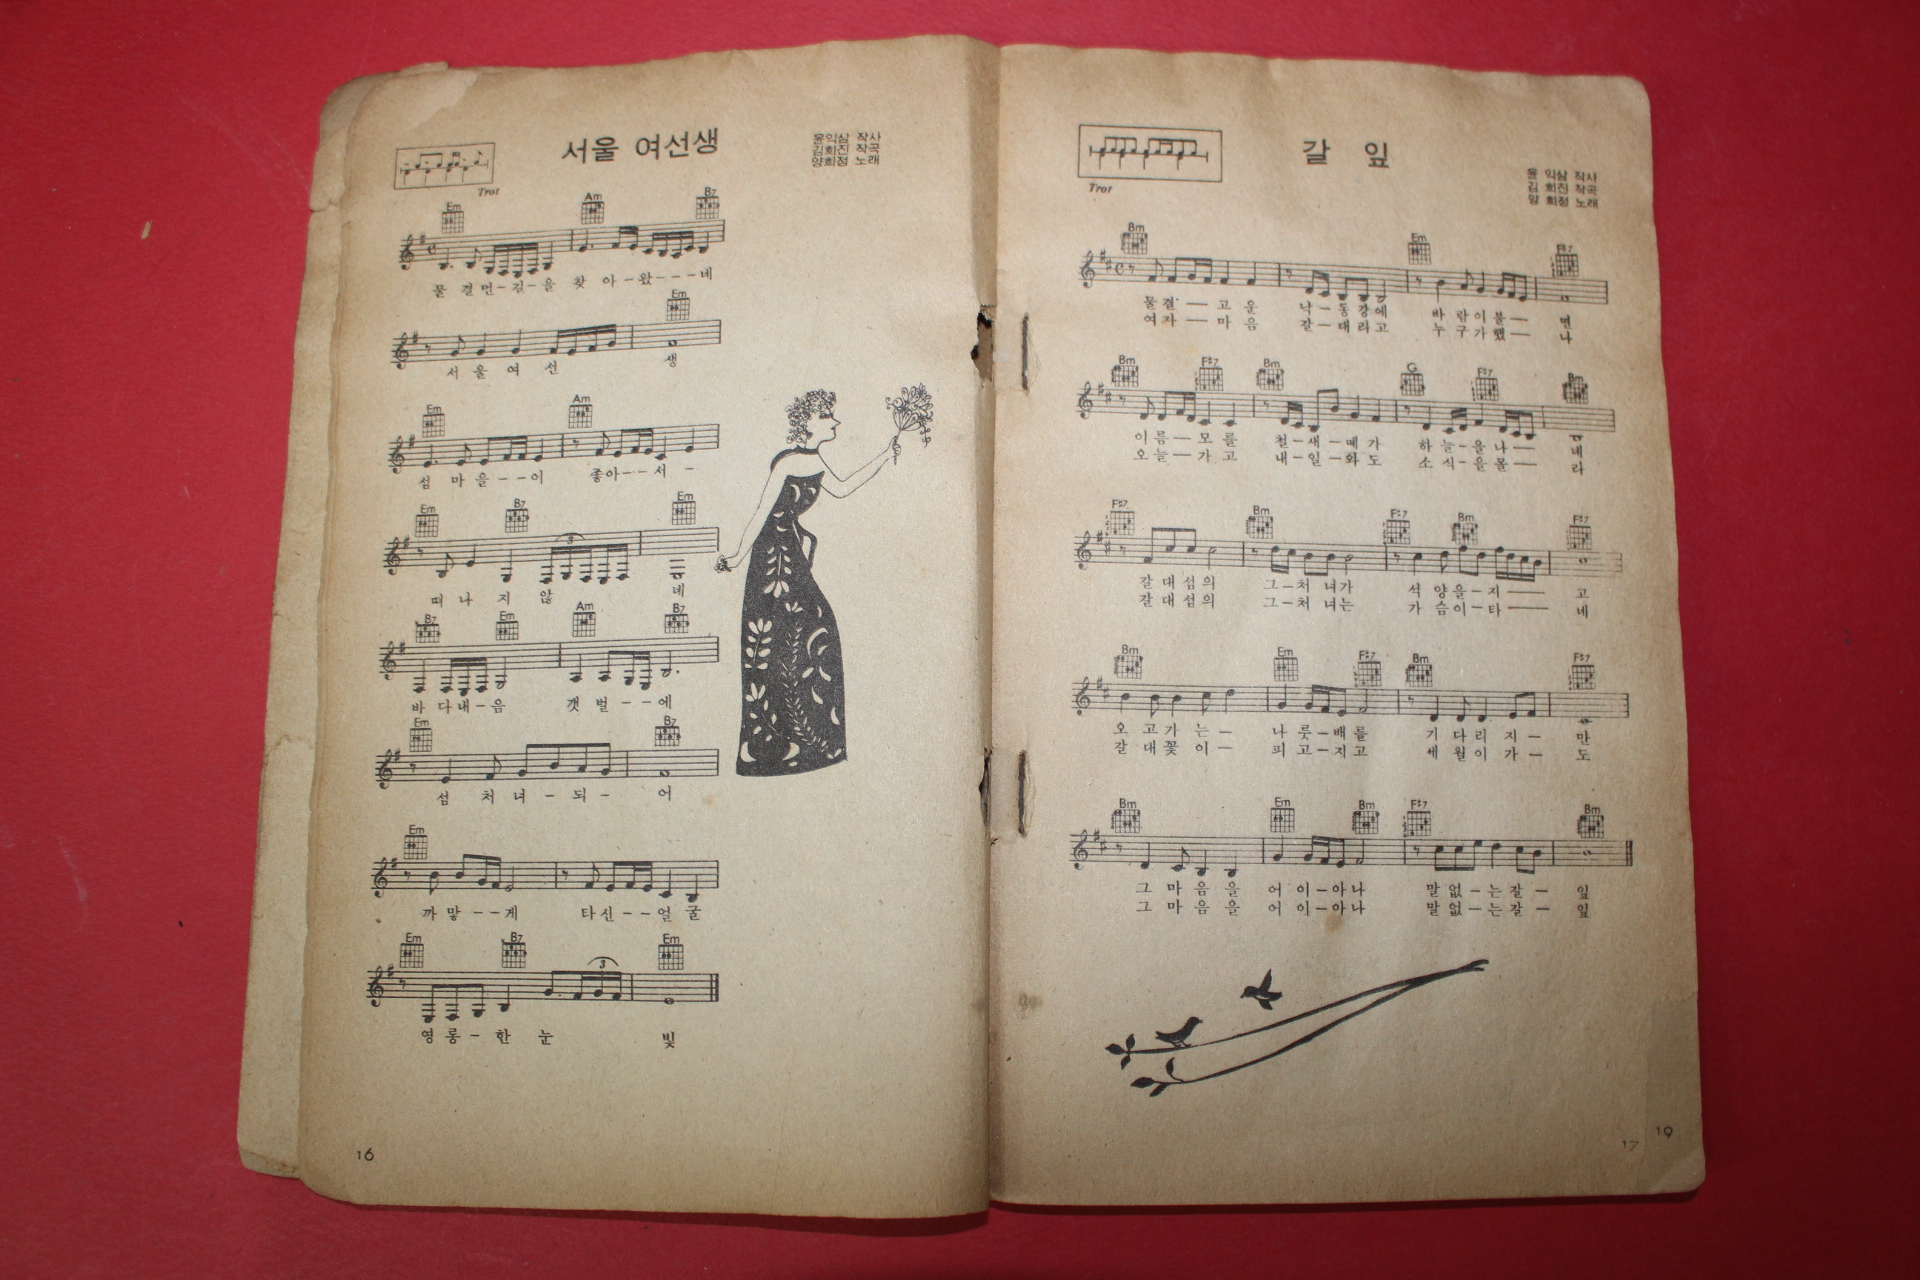 서울 여선생
윤익삼 작사
김희진 작곡
양희정 노래
Trot
Em Am B7
물 결먼-길-을 찾 아-왔---네
Em
서 울 여 선 생
Em Am
섬 마 을--이 좋아--서-
Em B7 Em
3
떠 나 지 않 네
B7 Em Am B7
바 다내-음 갯 벌--에
Em B7
섬 처 녀-되-어
Em
까 맣--게 타신--얼 굴
Em B7 Em
3
영 롱-한 눈 빛
16
갈 잎
윤 익삼 작사
김 희진 작곡
양 희정 노래
Trot
Bm Em F#7
물결-고 운 낙-동강에 바 람이불- 면
여자-마 음 갈-대라고 누 구가했- 나
Bm F#7 Bm G F#7 Bm
이름-모 를 철-새-떼가 하 늘-을나- 네
오늘-가 고 내-일-와도 소 식-을몰- 라
F#7 Bm F#7 Bm F#7
갈 대 섬 의 그-처 녀가 석 양을-지- 고
갈 대 섬 의 그-처 녀는 가 슴이-타- 네
Bm Em F#7 Bm F#7
오 고가 는- 나 룻-배를 기 다 리 지- 만
갈 대꽃 이- 피 고-지고 세 월 이 가- 도
Bm Em Bm F#7 Bm
그 마 음 을 어 이-아나 말없-는갈- 잎
그 마 음 을 어 이-아나 말없-는갈- 잎
17
19